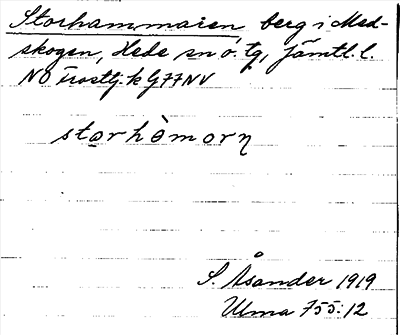 Storhammaren berg i Med-
skogen, Hede sn o. tg, Jämtl. l.
NO
storhàmorn
S. Åsander 1919
Ulma 755:12